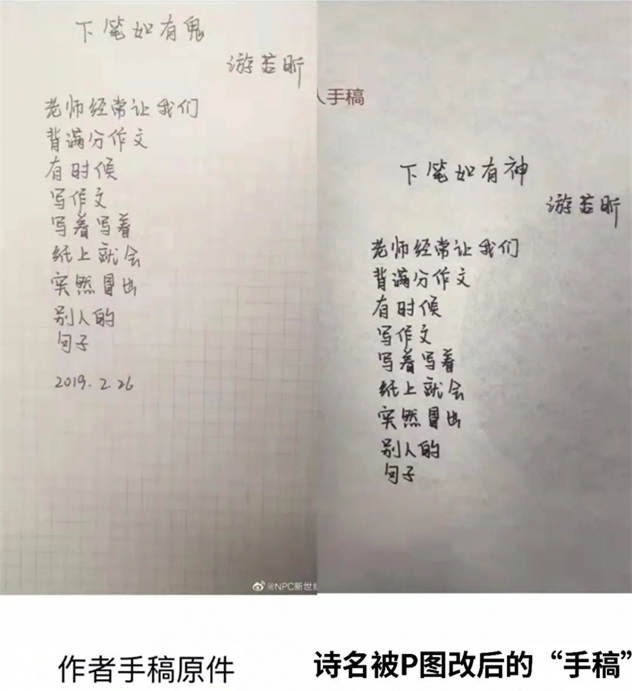 下笔如有鬼
游若昕
老师经常让我们
背满分作文
有时候
写作文
写着写着
纸上就会
突然冒出
别人的
句子
2019.2.26
@NPC新世纪
作者手稿原件
人手稿
下笔如有神
游若昕
老师经常让我们
背满分作文
有时候
写作文
写着写着
纸上就会
突然冒出
别人的
句子
诗名被P图改后的“手稿”